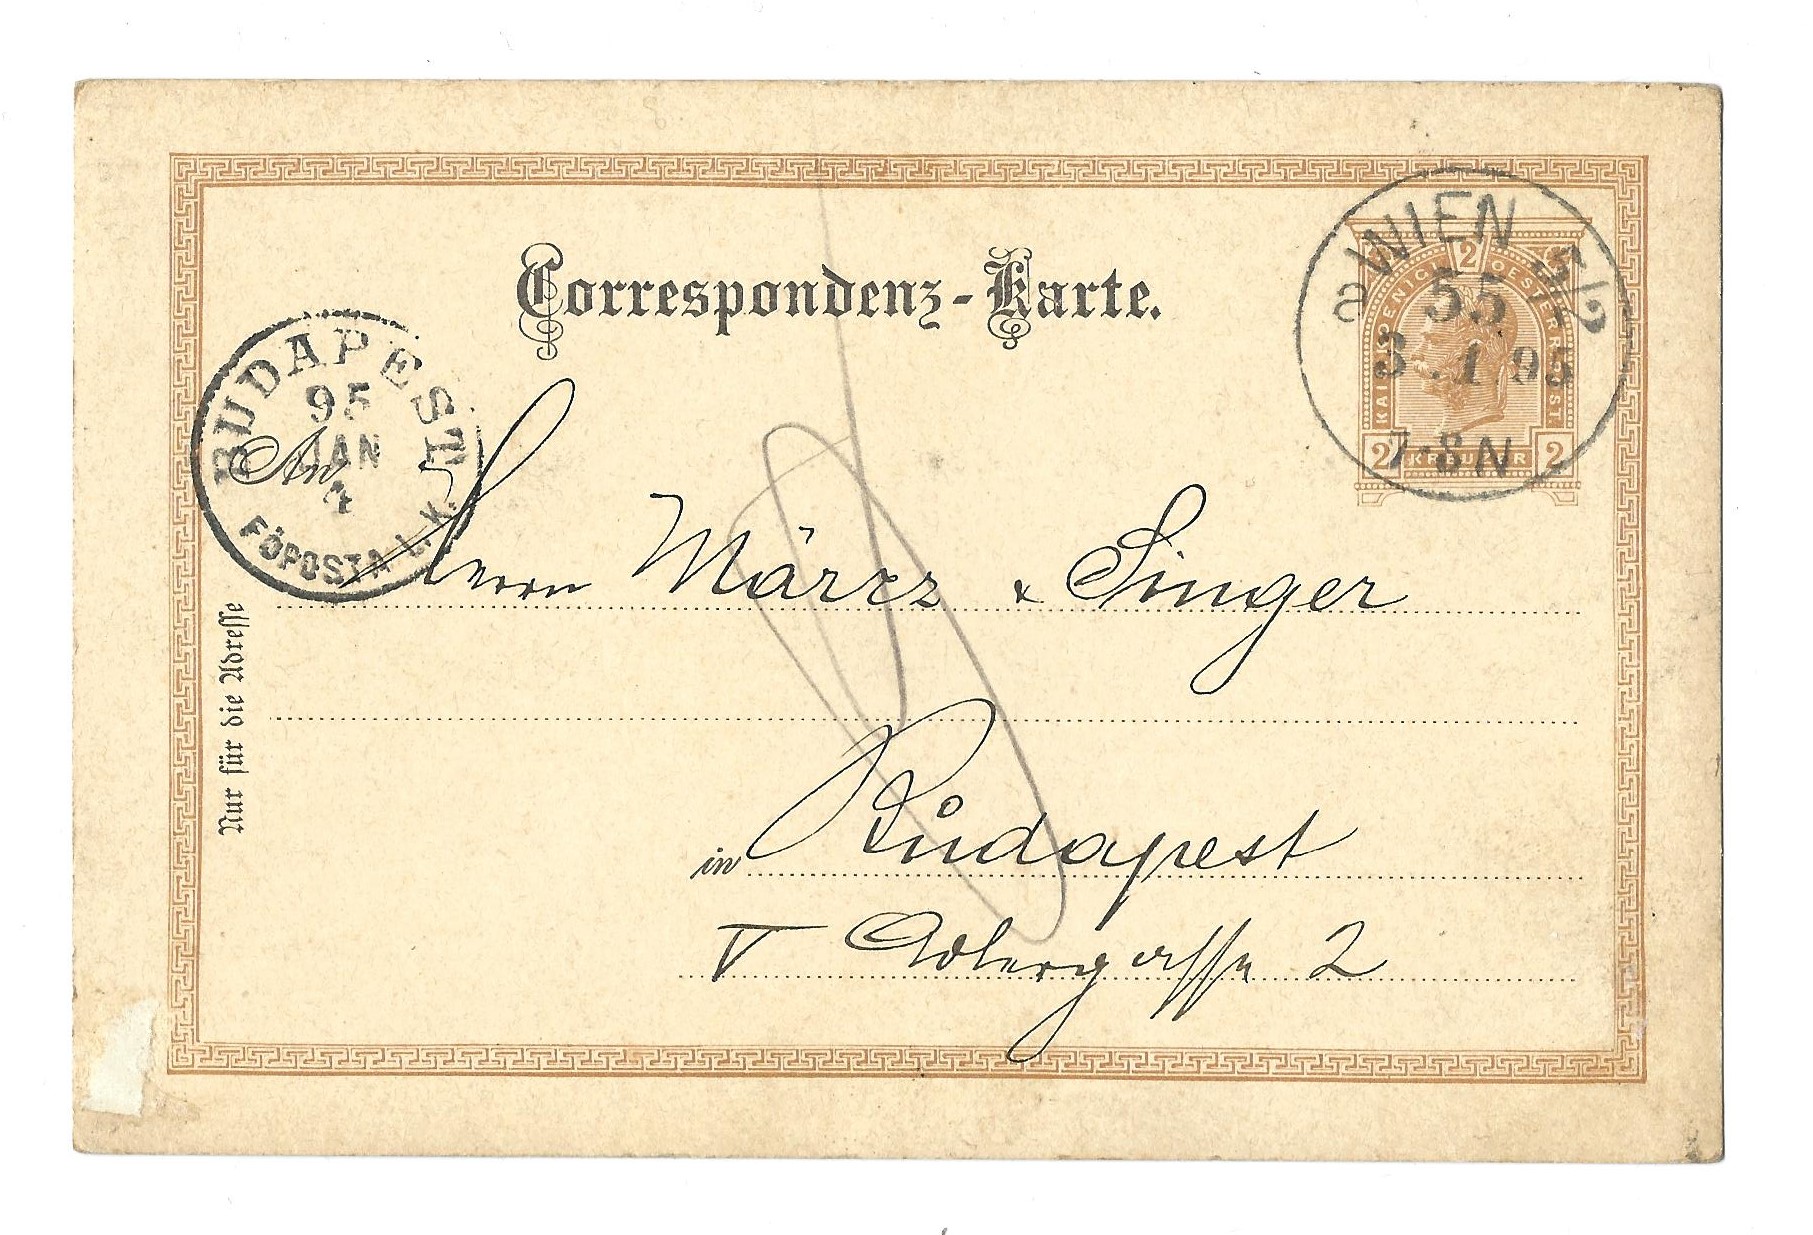 Correspondenz-Karte.
a WIEN 5/2
55
3.1.95
7-8N
2
KAIS. KOENIGL. OESTERR. POST
2 KREUZER 2
BUDAPEST
95
JAN
4
FŐPOSTA I. K.
An
Herrn März & Singer
in Budapest
V Adlergasse 2
Nur für die Adresse